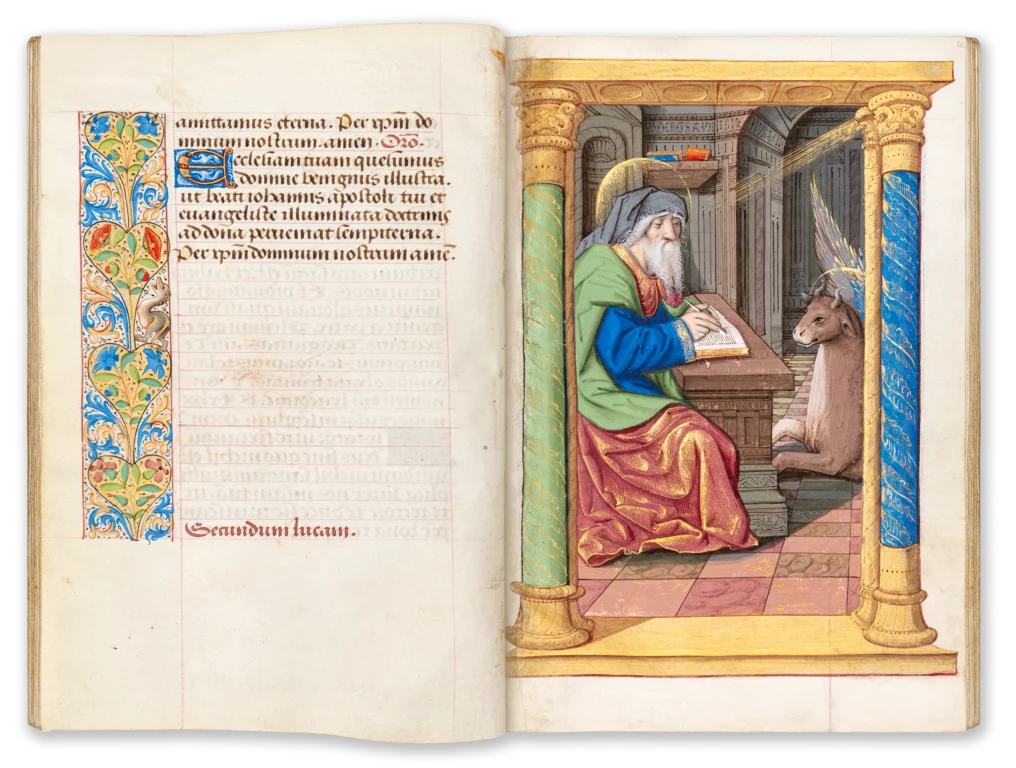 amittamus eterna. Per xp̅m do
minum nostrum. amen. Oro̅.
Ecclesiam tuam quesumus
domine benignus illustra.
ut beati iohannis apostoli tui et
euangeliste illuminata doctrinis
ad dona perueniat sempiterna.
Per xp̅m dominum nostrum ame̅.
Secundum lucam.